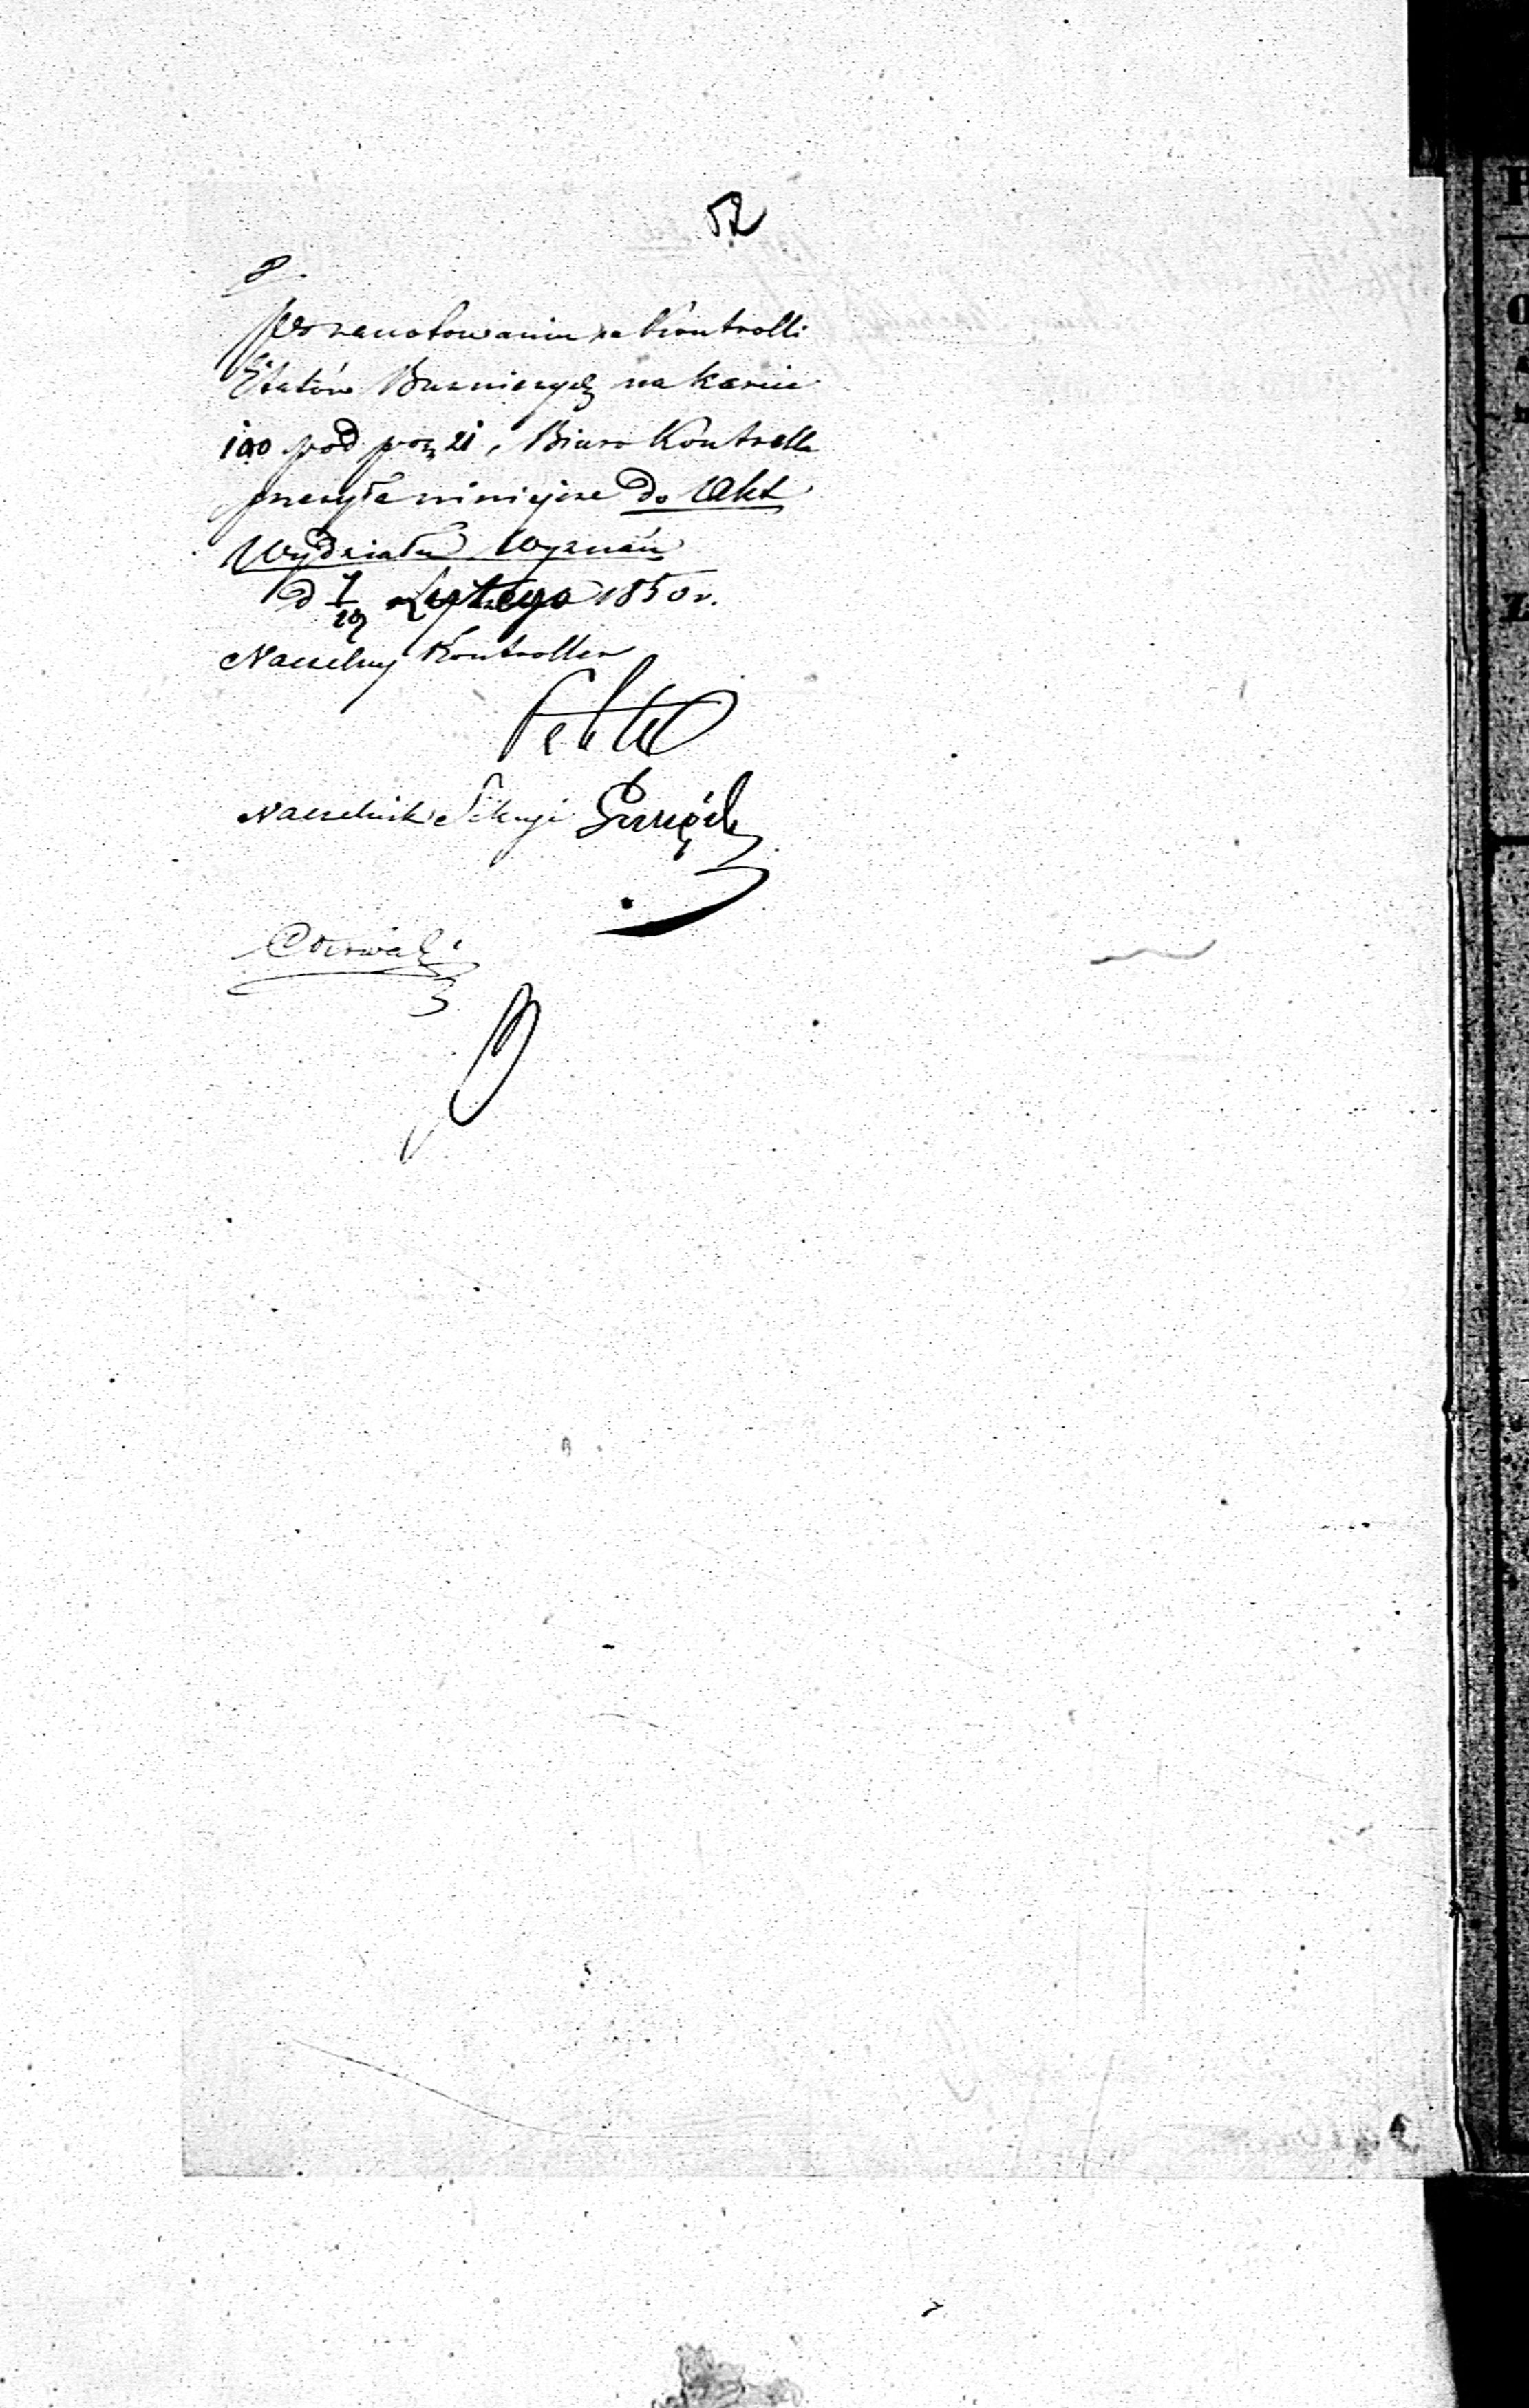 52
8.
Po zanotowaniu na Kontrolli
Etatów Buzniczych na karcie
100 pod poz 21, Biuro Kontrolli
przesyła niniejsze do Akt
Wydziału Wyznań
d 7/19 Lutego 1850 r.
Naczelny Kontroller
Naczelnik Sekcyi